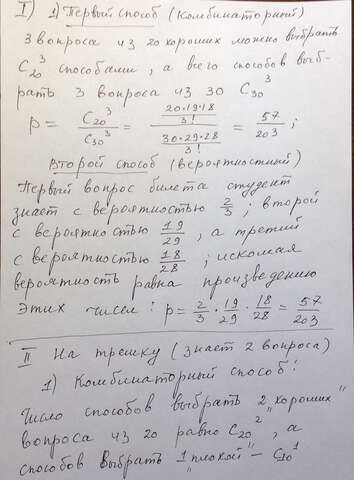 I) 1) Первый способ (Комбинаторный)
3 вопроса из 20 хороших можно выбрать
C₂₀³ способами, а всего способов выб-
рать 3 вопроса из 30 C₃₀³
p = C₂₀³ / C₃₀³ = (20·19·18 / 3!) / (30·29·28 / 3!) = 57/203 ;
Второй способ (вероятностный)
Первый вопрос билета студент
знает с вероятностью 2/3 ; второй
с вероятностью 19/29 , а третий
с вероятностью 18/28 ; искомая
вероятность равна произведению
этих чисел : p = 2/3 · 19/29 · 18/28 = 57/203
II На трешку (знает 2 вопроса)
1) Комбинаторный способ:
Число способов выбрать 2 "хороших"
вопроса из 20 равно C₂₀² , а
способов выбрать 1 "плохой" – C₁₀¹